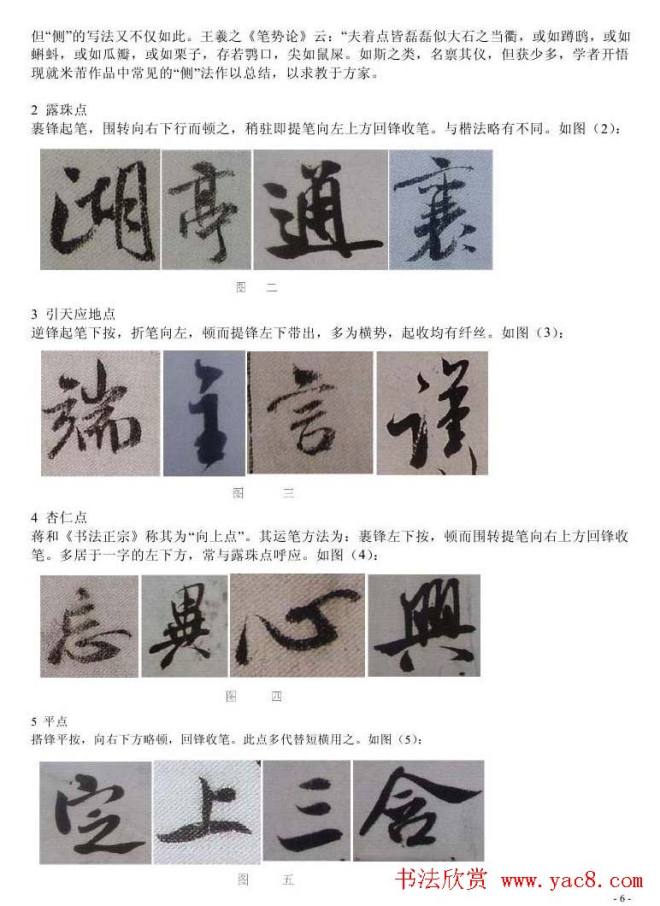 但“侧”的写法又不仅如此。王羲之《笔势论》云：“夫着点皆磊磊似大石之当衢，或如蹲鸱，或如
蝌蚪，或如瓜瓣，或如栗子，存若鹗口，尖如鼠屎。如斯之类，名禀其仪，但获少多，学者开悟
现就米芾作品中常见的“侧”法作以总结，以求教于方家。
2 露珠点
裹锋起笔，围转向右下行而顿之，稍驻即提笔向左上方回锋收笔。与楷法略有不同。如图（2）：
湖 亭 通 裹
图 二
3 引天应地点
逆锋起笔下按，折笔向左，顿而提锋左下带出，多为横势，起收均有纤丝。如图（3）：
端 主 言 谨
图 三
4 杏仁点
蒋和《书法正宗》称其为“向上点”。其运笔方法为：裹锋左下按，顿而围转提笔向右上方回锋收
笔。多居于一字的左下方，常与露珠点呼应。如图（4）：
忘 異 心 興
图 四
5 平点
搭锋平按，向右下方略顿，回锋收笔。此点多代替短横用之。如图（5）：
定 上 三 含
图 五
书法欣赏 www.yac8.com
- 6 -